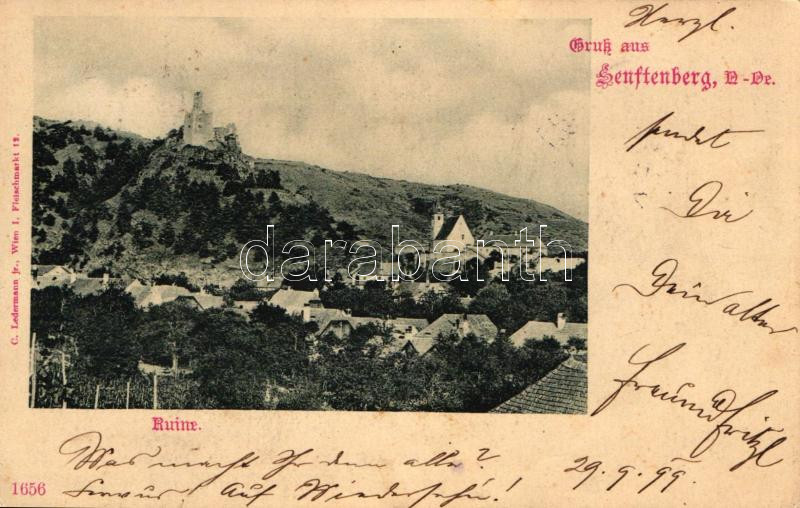 Herzl.
Gruß aus
Senftenberg, N-Oe.
sendet
Dir
Dein alter
Freund Fritzl
C. Ledermann jr., Wien I, Fleischmarkt 12.
darabanth.com
Ruine.
Was macht Ihr denn alle?
29.9.99
1656
Servus! Auf Wiedersehn!